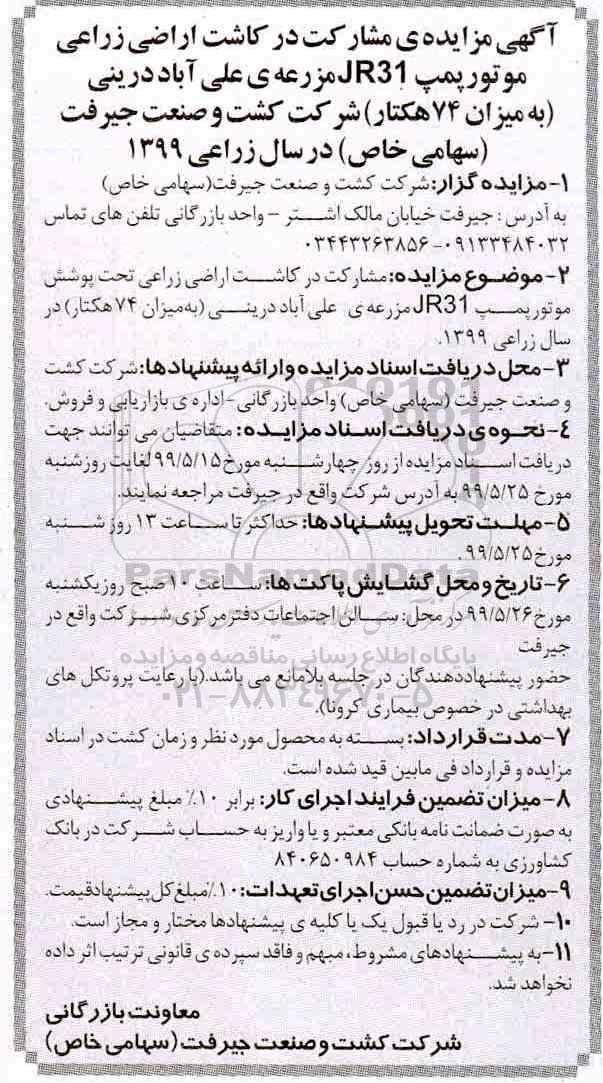 آگهی مزایده‌ی مشارکت در کاشت اراضی زراعی
موتور پمپ JR31 مزرعه‌ی علی آباد درینی
(به میزان ۷۴ هکتار) شرکت کشت و صنعت جیرفت
(سهامی خاص) در سال زراعی ۱۳۹۹
۱- مزایده گزار: شرکت کشت و صنعت جیرفت (سهامی خاص)
به آدرس: جیرفت خیابان مالک اشتر - واحد بازرگانی تلفن های تماس
۰۹۱۳۳۴۸۴۰۳۲- ۰۳۴۴۳۲۶۳۸۵۶
۲- موضوع مزایده: مشارکت در کاشت اراضی زراعی تحت پوشش
موتور پمپ JR31 مزرعه‌ی علی آباد درینی (به میزان ۷۴ هکتار) در
سال زراعی ۱۳۹۹.
۳- محل دریافت اسناد مزایده و ارائه پیشنهادها: شرکت کشت
و صنعت جیرفت (سهامی خاص) واحد بازرگانی - اداره‌ی بازاریابی و فروش.
۴- نحوه‌ی دریافت اسناد مزایده: متقاضیان می توانند جهت
دریافت اسناد مزایده از روز چهارشنبه مورخ ۹۹/۵/۱۵ لغایت روز شنبه
مورخ ۹۹/۵/۲۵ به آدرس شرکت واقع در جیرفت مراجعه نمایند.
۵- مهلت تحویل پیشنهادها: حداکثر تا ساعت ۱۳ روز شنبه
مورخ ۹۹/۵/۲۵.
۶- تاریخ و محل گشایش پاکت ها: ساعت ۱۰ صبح روز یکشنبه
مورخ ۹۹/۵/۲۶ در محل: سالن اجتماعات دفتر مرکزی شرکت واقع در
جیرفت
حضور پیشنهاددهندگان در جلسه بلامانع می باشد. (با رعایت پروتکل های
بهداشتی در خصوص بیماری کرونا).
۷- مدت قرارداد: بسته به محصول مورد نظر و زمان کشت در اسناد
مزایده و قرارداد فی مابین قید شده است.
۸- میزان تضمین فرایند اجرای کار: برابر ۱۰٪ مبلغ پیشنهادی
به صورت ضمانت نامه بانکی معتبر و یا واریز به حساب شرکت در بانک
کشاورزی به شماره حساب ۸۴۰۶۵۰۹۸۴
۹- میزان تضمین حسن اجرای تعهدات: ۱۰٪ مبلغ کل پیشنهاد قیمت.
۱۰- شرکت در رد یا قبول یک یا کلیه ی پیشنهادها مختار و مجاز است.
۱۱- به پیشنهادهای مشروط، مبهم و فاقد سپرده ی قانونی ترتیب اثر داده
نخواهد شد.
معاونت بازرگانی
شرکت کشت و صنعت جیرفت (سهامی خاص)
ParsNamadData
پایگاه اطلاع رسانی مناقصه و مزایده
۰۲۱-۸۸۳۴۹۶۷۰-۵